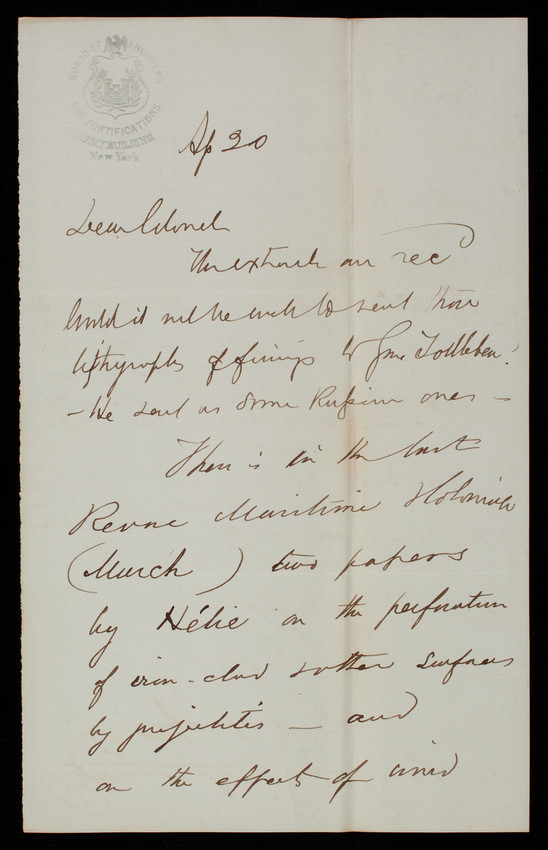 BOARD OF ENGINEERS
FOR FORTIFICATIONS
ARMY BUILDING
New York
Ap 20
Dear Colonel
The extracts are rec'd
Would it not be well to send those
lithographs of firings to Gen Todleben?
- He sent us some Russian ones -
There is in the last
Revue Maritime & Coloniale
(March) two papers
by Hélie on the perforation
of iron-clad & other surfaces
by projectiles - and
on the effects of wind